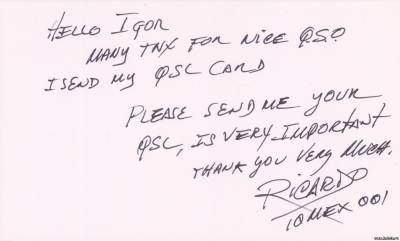 HELLO IGOR
MANY TNX FOR NICE QSO
I SEND MY QSL CARD
PLEASE SEND ME YOUR
QSL, IS VERY IMPORTANT
THANK YOU VERY MUCH.
RICARDO
10MEX 001